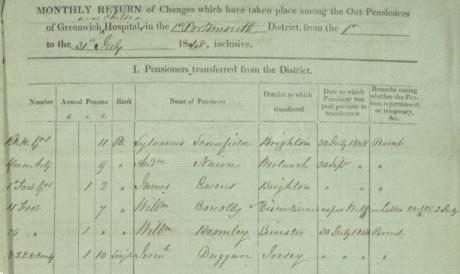 MONTHLY RETURN of Changes which have taken place among the Out-Pensioners
and Chelsea
of Greenwich Hospital, in the 1st Portsmouth District, from the 1st
to the 31st July 1848, inclusive.
I. Pensioners transferred from the District.
Number Annual Pension Rank Name of Pensioner District to which transferred Date to which Pensioner was paid previous to transference Remarks stating whether the Pension is permanent or temporary, &c.
£ s. d.
11 Pte Sylvanus Brighton 30 July 1848 Permt
9 " Andw Woolwich 30 Sepr "
1st Foot Gds 1 2 " James Ewens Brighton " "
11 Foot 7 " Willm Conolly Discontinued as per W. Off 3 July
15 " " " Willm Bromley Leinster 30 July 1848 Permt
1 10 Serjt Jerh Duggan Jersey " "